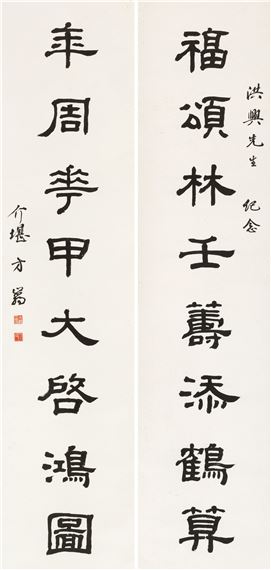 洪興先生 紀念
福頌林壬籌添鶴算
年周花甲大啓鴻圖
介堪方巖